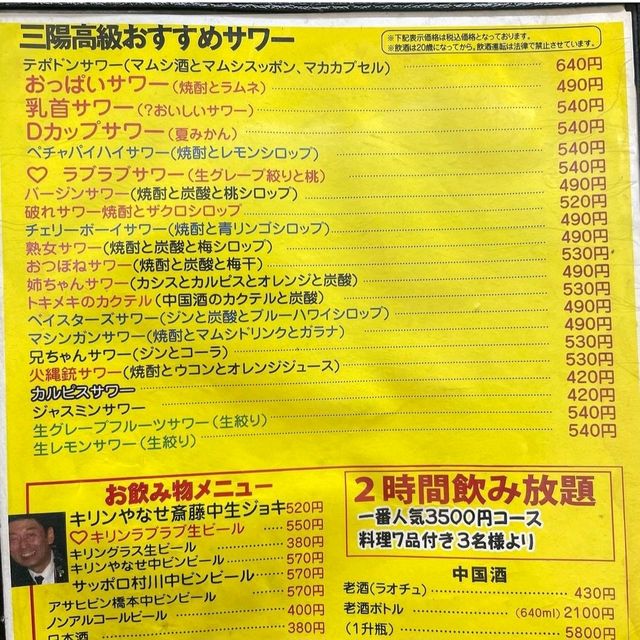 三陽高級おすすめサワー
※下記表示価格は税込価格となっております。
※飲酒は20歳になってから。飲酒運転は法律で禁止されています。
テポドンサワー(マムシ酒とマムシスッポン、マカカプセル) 640円
おっぱいサワー(焼酎とラムネ) 490円
乳首サワー(?おいしいサワー) 540円
Dカップサワー(夏みかん) 540円
ペチャパイハイサワー(焼酎とレモンシロップ) 540円
♡ ラブラブサワー(生グレープ絞りと桃) 540円
バージンサワー(焼酎と炭酸と桃シロップ) 490円
破れサワー焼酎とザクロシロップ 520円
チェリーボーイサワー(焼酎と青リンゴシロップ) 490円
熟女サワー(焼酎と炭酸と梅シロップ) 490円
おつぼねサワー(焼酎と炭酸と梅干) 530円
姉ちゃんサワー(カシスとカルピスとオレンジと炭酸) 490円
トキメキのカクテル(中国酒のカクテルと炭酸) 530円
ベイスターズサワー(ジンと炭酸とブルーハワイシロップ) 490円
マシンガンサワー(焼酎とマムシドリンクとガラナ) 490円
兄ちゃんサワー(ジンとコーラ) 530円
火縄銃サワー(焼酎とウコンとオレンジジュース) 530円
カルピスサワー 420円
ジャスミンサワー 420円
生グレープフルーツサワー(生絞り) 540円
生レモンサワー(生絞り) 540円
お飲み物メニュー
キリンやなせ斎藤中生ジョキ 520円
♡キリンラブラブ生ビール 550円
キリングラス生ビール 380円
キリンやなせ中ビンビール 570円
サッポロ村川中ビンビール 570円
アサヒビン橋本中ビンビール 570円
ノンアルコールビール 400円
日本酒 380円
2時間飲み放題
一番人気3500円コース
料理7品付き3名様より
中国酒
老酒(ラオチュ) 430円
老酒ボトル (640ml) 2100円
(1升瓶) 5800円